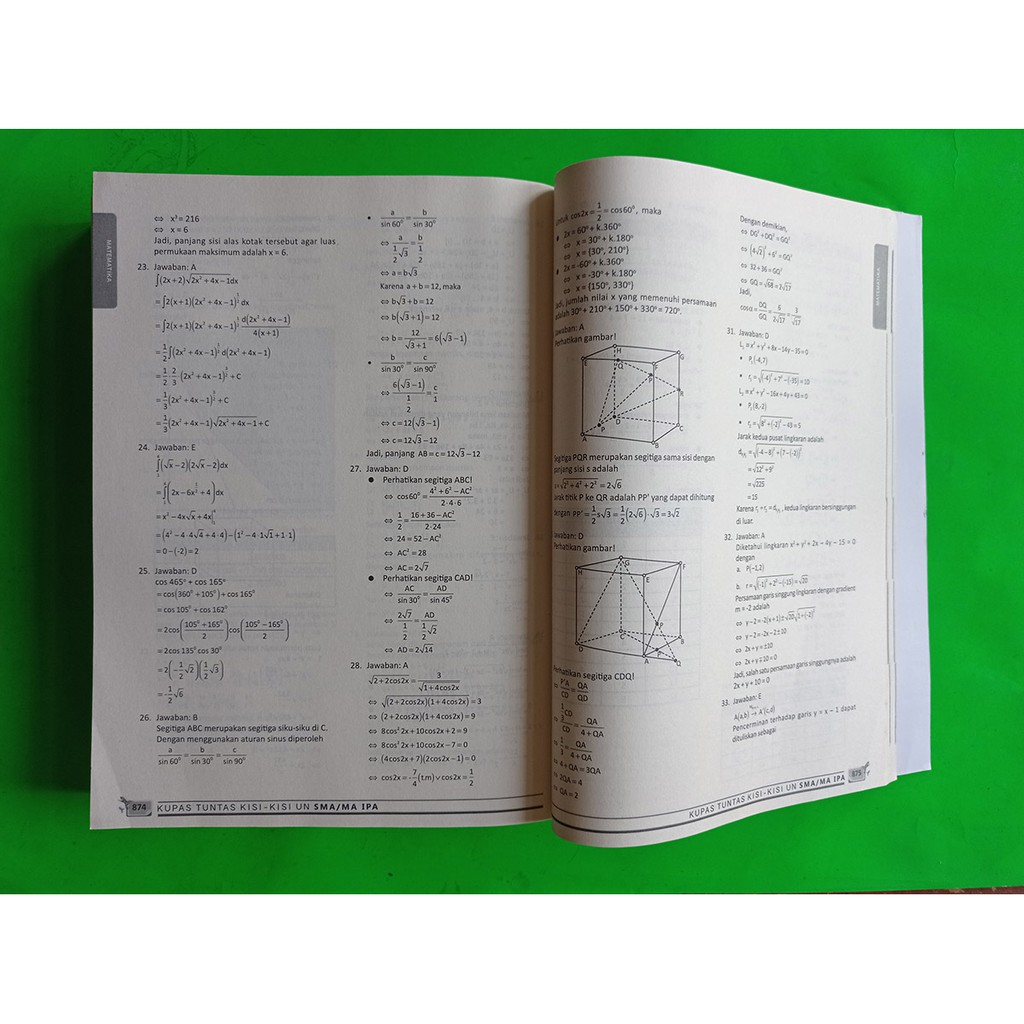 MATEMATIKA
⇔ x³ = 216
⇔ x = 6
Jadi, panjang sisi alas kotak tersebut agar luas
permukaan maksimum adalah x = 6.
23. Jawaban: A
∫(2x+2)√(2x²+4x−1)dx
=∫2(x+1)(2x²+4x−1)^(1/2) dx
=∫2(x+1)(2x²+4x−1)^(1/2) d(2x²+4x−1)/4(x+1)
=1/2∫(2x²+4x−1)^(1/2) d(2x²+4x−1)
=1/2·2/3·(2x²+4x−1)^(3/2)+C
=1/3(2x²+4x−1)^(3/2)+C
=1/3(2x²+4x−1)√(2x²+4x−1)+C
24. Jawaban: E
∫₁⁴(√x−2)(2√x−2)dx
=∫₁⁴(2x−6x^(1/2)+4)dx
=x²−4x√x+4x|₁⁴
=(4²−4·4√4+4·4)−(1²−4·1√1+1·1)
=0−(−2)=2
25. Jawaban: D
cos 465° + cos 165°
=cos(360°+105°)+cos 165°
=cos 105°+cos 162°
=2cos((105°+165°)/2)cos((105°−165°)/2)
=2cos 135° cos 30°
=2(−1/2√2)(1/2√3)
=−1/2√6
26. Jawaban: B
Segitiga ABC merupakan segitiga siku-siku di C.
Dengan menggunakan aturan sinus diperoleh
a/sin 60° = b/sin 30° = c/sin 90°
• a/sin 60° = b/sin 30°
⇔ a/(1/2√3) = b/(1/2)
⇔ a=b√3
Karena a+b=12, maka
⇔ b√3+b=12
⇔ b(√3+1)=12
⇔ b=12/(√3+1)=6(√3−1)
• b/sin 30° = c/sin 90°
⇔ 6(√3−1)/(1/2) = c/1
⇔ c=12(√3−1)
⇔ c=12√3−12
Jadi, panjang AB=c=12√3−12
27. Jawaban: D
● Perhatikan segitiga ABC!
⇔ cos60°=(4²+6²−AC²)/(2·4·6)
⇔ 1/2=(16+36−AC²)/(2·24)
⇔ 24=52−AC²
⇔ AC²=28
⇔ AC=2√7
● Perhatikan segitiga CAD!
AC/sin 30° = AD/sin 45°
⇔ 2√7/(1/2) = AD/(1/2√2)
⇔ AD=2√14
28. Jawaban: A
√(2+2cos2x)=3/√(1+4cos2x)
⇔ √((2+2cos2x)(1+4cos2x))=3
⇔ (2+2cos2x)(1+4cos2x)=9
⇔ 8cos²2x+10cos2x+2=9
⇔ 8cos²2x+10cos2x−7=0
⇔ (4cos2x+7)(2cos2x−1)=0
⇔ cos2x=−7/4(t.m)∨cos2x=1/2
874 KUPAS TUNTAS KISI-KISI UN SMA/MA IPA
untuk cos2x=1/2=cos60°, maka
● 2x = 60° + k.360°
⇔ x = 30° + k.180°
⇔ x = {30°, 210°}
● 2x = -60° + k.360°
⇔ x = -30° + k.180°
⇔ x = {150°, 330°}
Jadi, jumlah nilai x yang memenuhi persamaan
adalah 30° + 210° + 150° + 330° = 720°.
Jawaban: A
Perhatikan gambar!
H
G
E
Q
F
P
R
D
C
P
A
B
Segitiga PQR merupakan segitiga sama sisi dengan
panjang sisi s adalah
s=√(2²+4²+2²)=2√6
Jarak titik P ke QR adalah PP' yang dapat dihitung
dengan PP'=1/2s√3=1/2(2√6)·√3=3√2
Jawaban: D
Perhatikan gambar!
G
H
F
E
P
C
B
D
A
P
Q
Perhatikan segitiga CDQ!
⇔ P'A/CD=QA/QD
⇔ 1/3CD/CD=QA/(4+QA)
⇔ 1/3=QA/(4+QA)
⇔ 4+QA=3QA
⇔ 2QA=4
⇔ QA=2
Dengan demikian,
⇔ DG²+DQ²=GQ²
⇔ (4√2)²+6²=GQ²
⇔ 32+36=GQ²
⇔ GQ=√68=2√17
Jadi,
cosα=DQ/GQ=6/2√17=3/√17
31. Jawaban: D
L₁≡x²+y²+8x−14y−35=0
• P₁(-4,7)
• r₁=√((-4)²+7²−(-35))=10
L₂≡x²+y²−16x+4y+43=0
• P₂(8,-2)
• r₂=√(8²+(-2)²−43)=5
Jarak kedua pusat lingkaran adalah
=√(12²+9²)
=√225
=15
Karena r₁+r₂=d, kedua lingkaran bersinggungan
di luar.
32. Jawaban: A
Diketahui lingkaran x²+ y²+ 2x − 4y − 15 = 0
dengan
a. P(−1,2)
b. r=√((-1)²+2²−(-15))=√20
Persamaan garis singgung lingkaran dengan gradient
m = -2 adalah
⇔ y−2=-2(x+1)±√20√(1+(-2)²)
⇔ y−2=-2x−2±10
⇔ 2x+y=±10
⇔ 2x+y∓10=0
Jadi, salah satu persamaan garis singgungnya adalah
2x + y + 10 = 0
33. Jawaban: E
A(a,b) → A'(c,d)
Pencerminan terhadap garis y = x − 1 dapat
dituliskan sebagai
MATEMATIKA
KUPAS TUNTAS KISI-KISI UN SMA/MA IPA 875